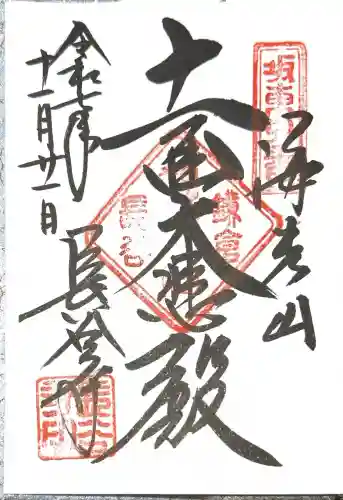 坂東
海光山
十一面大悲殿
鎌倉
長谷
令和七年
十一月廿一日
長谷寺